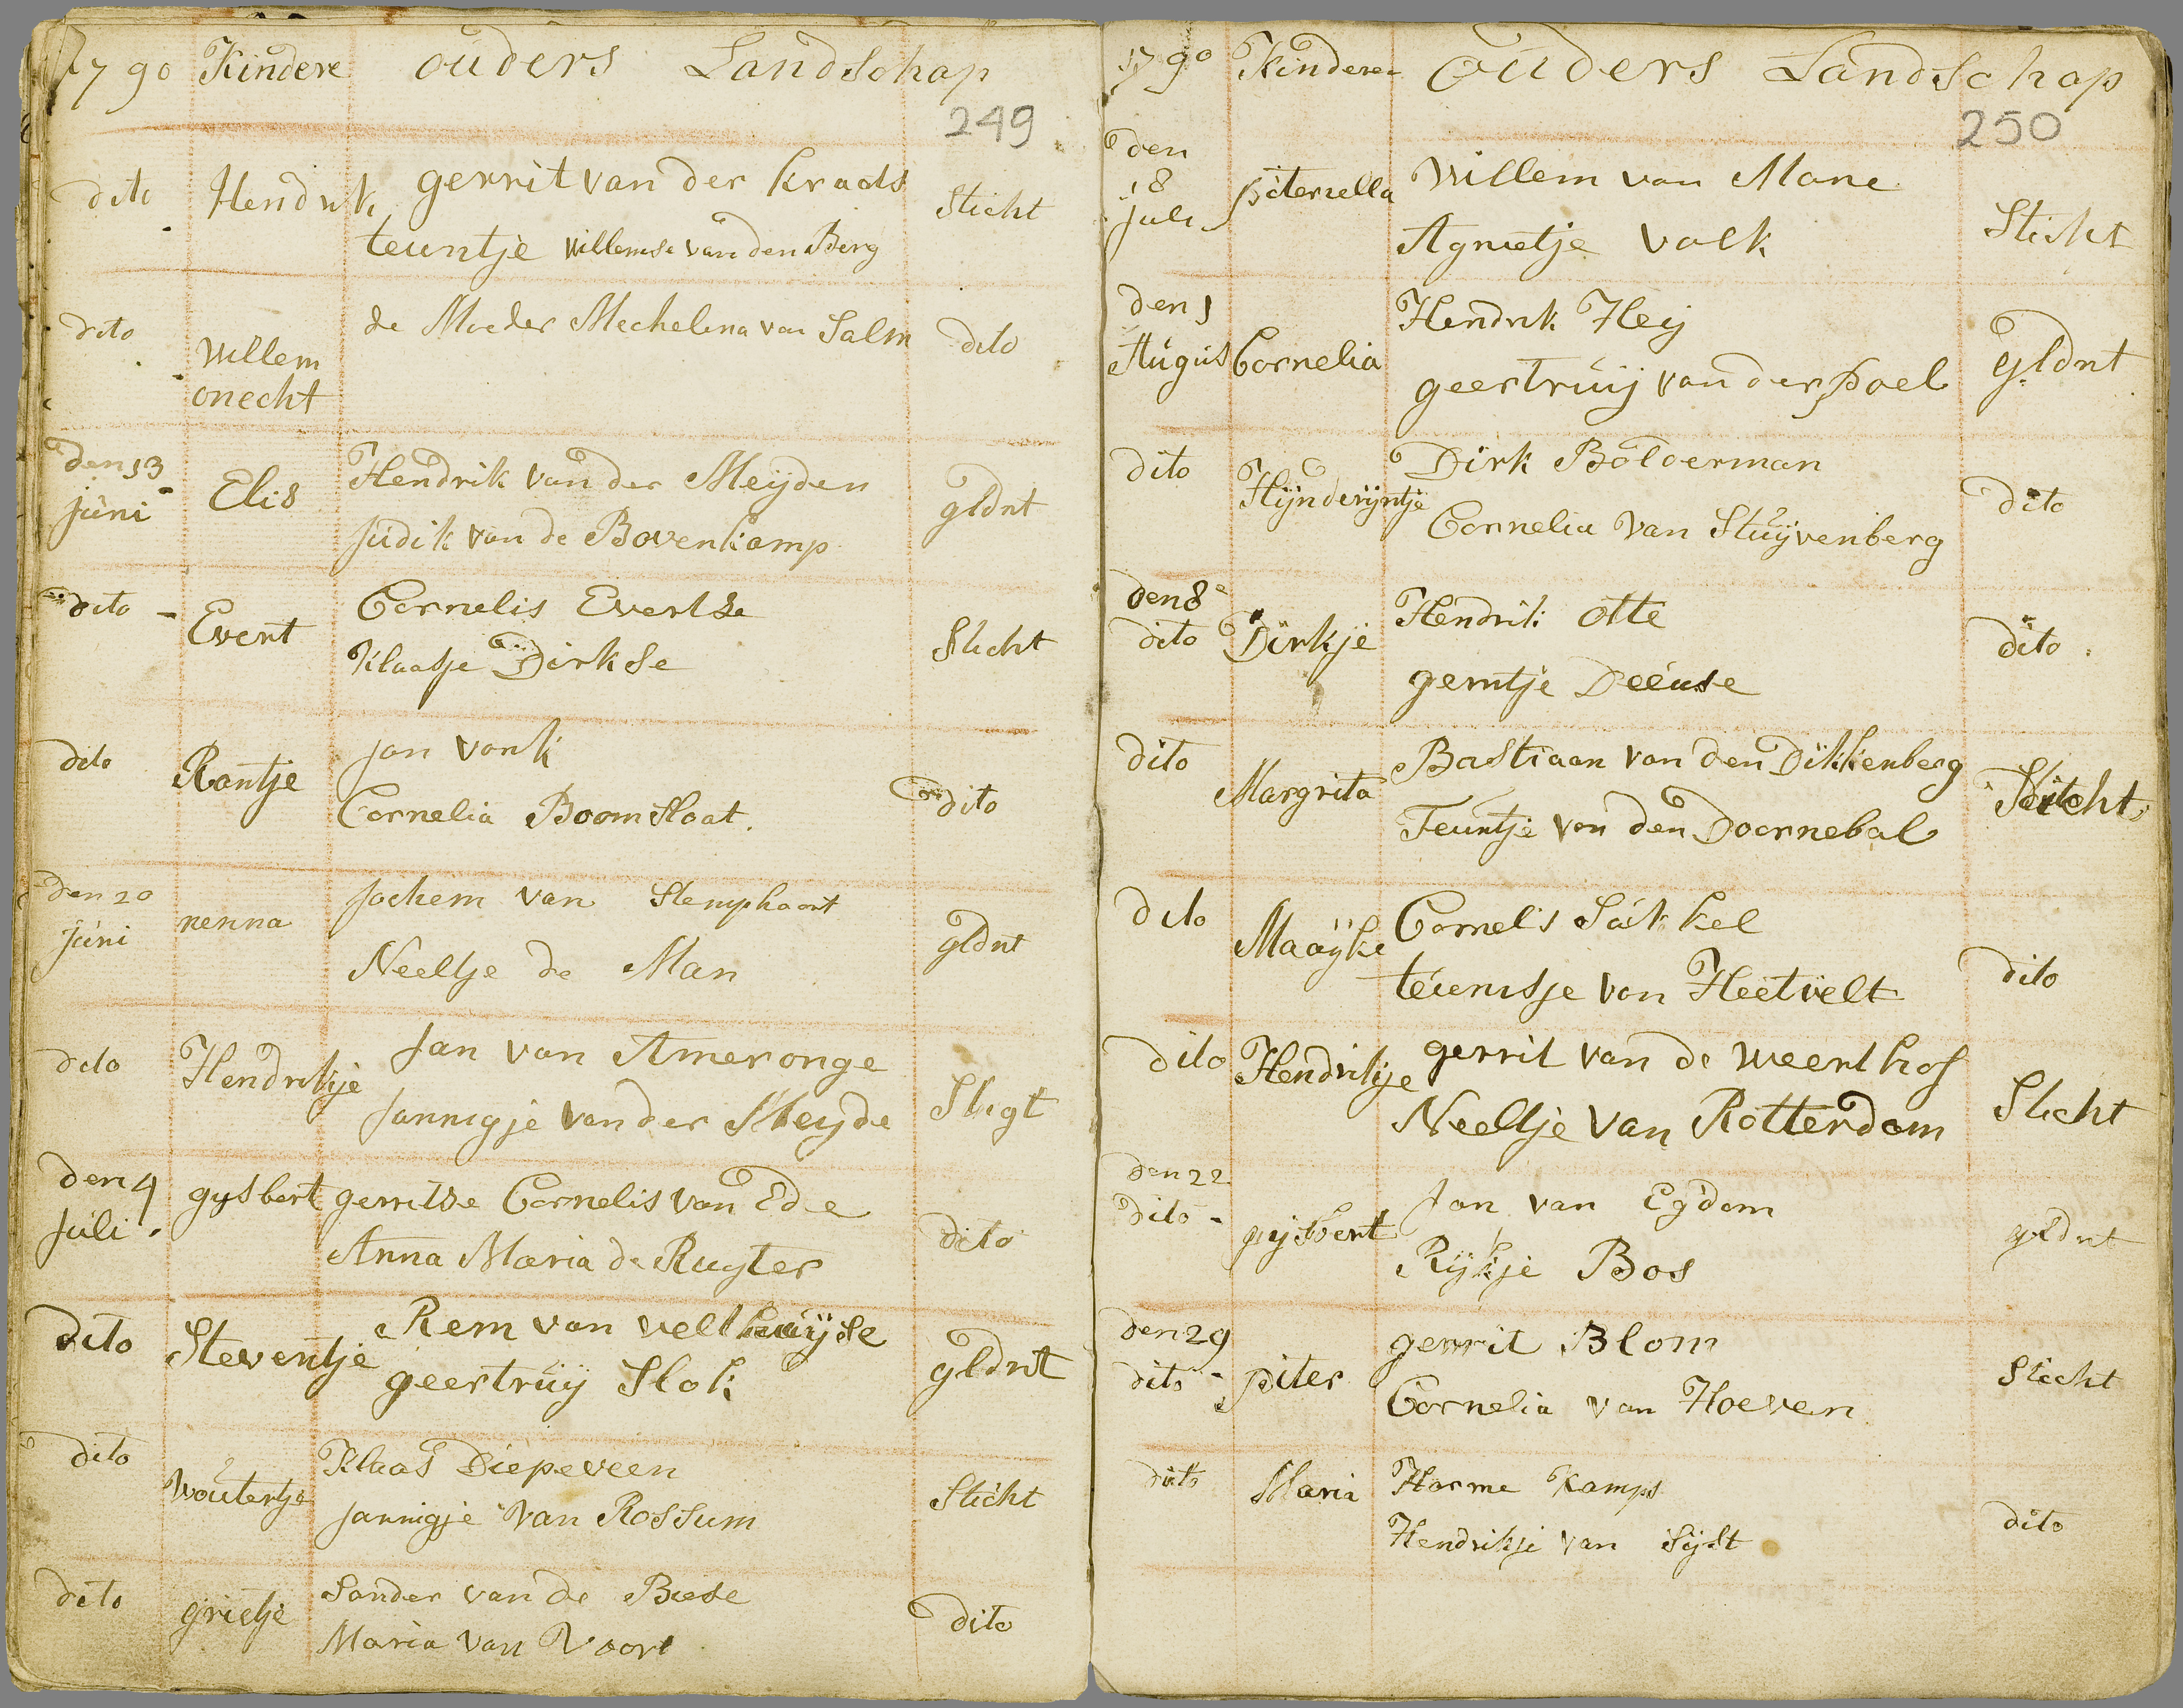 1790 Kindere ouders Landschap
249
dito Hendrik gerrit van der kraats Sticht
teuntje Willemse van den Berg
dito Willem onecht de Moeder Mechelina van Salm dito
den 13 juni Elis Hendrik van der Meijden gldnt
Judik van de Bovenkamp
dito Evert Cornelis Evertse Sticht
Klaasje Dirkse
dito Rantje jan vonk dito
Cornelia Boomsloat
den 20 juni nenna Jochem van Stemphoort gldnt
Neeltje de Man
dito Hendrikje Jan van Ameronge Stigt
Jannigje van der Meijde
den 4 Juli gysbert gerritse Cornelis van Ede dito
Anna Maria de Ruyter
dito Steventje Rem van velthuijse gldnt
geertruij Slok
dito Woutertje Klaas Diepeveen Sticht
jannigje van Rossum
dito grietje Sander van de Biese dito
Maria van Voort
1790 Kindere ouders Landschap
250
den 18 juli piternella Willem van Mane Sticht
Agnietje valk
den 1 Augus Cornelia Hendrik Heij gldnt
geertruij van der poel
dito Hijnderijntje Dirk Bolderman dito
Cornelia van Stuijvenberg
den 8 dito Dirkje Hendrik otte dito
gerritje Deeuse
dito Margrita Bastiaan van den Dikkenberg Sticht
Teuntje van den Doornebal
dito Maaijke Cornelis Sukkel dito
teunisje van Heetvelt
dito Hendrikje gerrit van de weerthof Sticht
Neeltje van Rotterdam
den 22 dito gijsbert Jan van Egdom gldnt
Rijkje Bos
den 29 dito piter gerrit Blom Sticht
Cornelia van Hoeven
dito Maria Harme Kamps dito
Hendrikje van Sijst